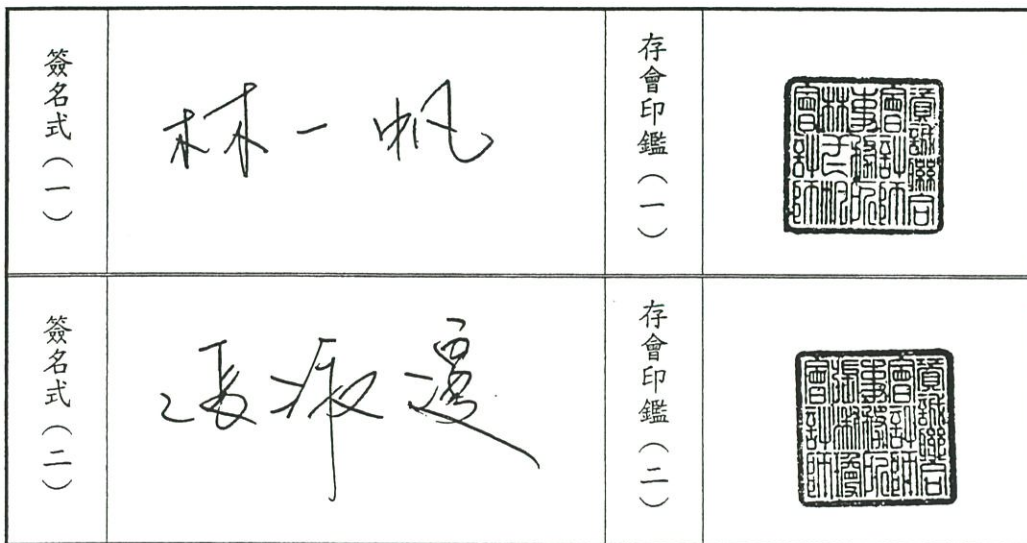 簽名式（一）
林一帆
存會印鑑（一）
資誠聯合
會計師
事務所
林一帆
會計師
簽名式（二）
張淑瓊
存會印鑑（二）
資誠聯合
會計師
事務所
張淑瓊
會計師